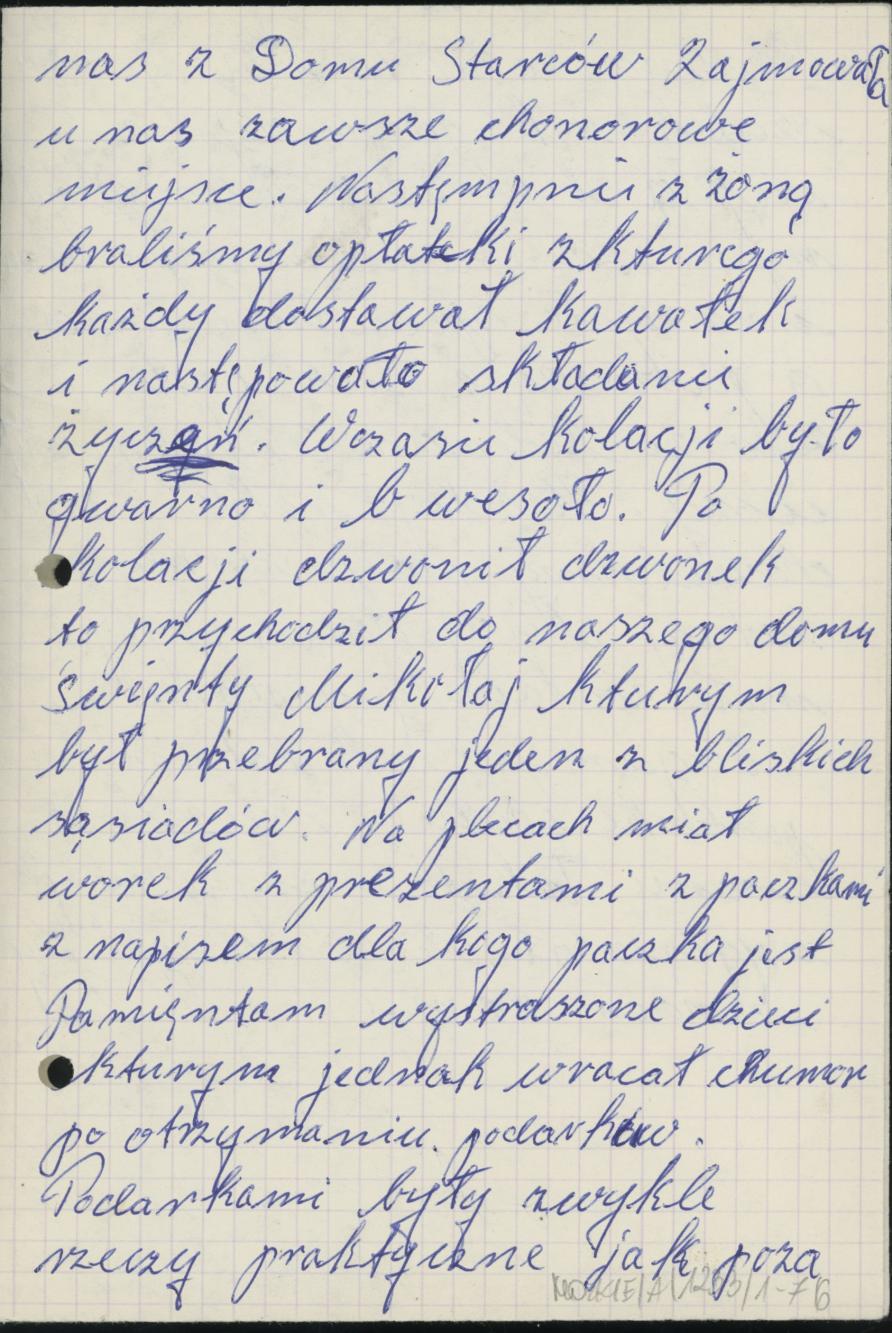 nas z Domu Starców Zajmowała
u nas zawsze chonorowe
miejsce. Nastęmpnie z żoną
braliśmy opłatki z kturego
każdy dostawał kawałek
i następowało składanie
życzeń. Wczasie kolacji było
gwarno i b wesoło. Po
kolacji dzwonił dzwonek
to przychodził do naszego domu
świenty Mikołaj kturym
był przebrany jeden z bliskich
sąsiadów. Na plecach miał
worek z prezentami z paczkami
z napisem dla kogo paczka jest
Pamientam wystraszone dzieci
kturym jednak wracał chumor
po otrzymaniu podarków.
Podarkami były zwykle
rzeczy praktyczne jak poza